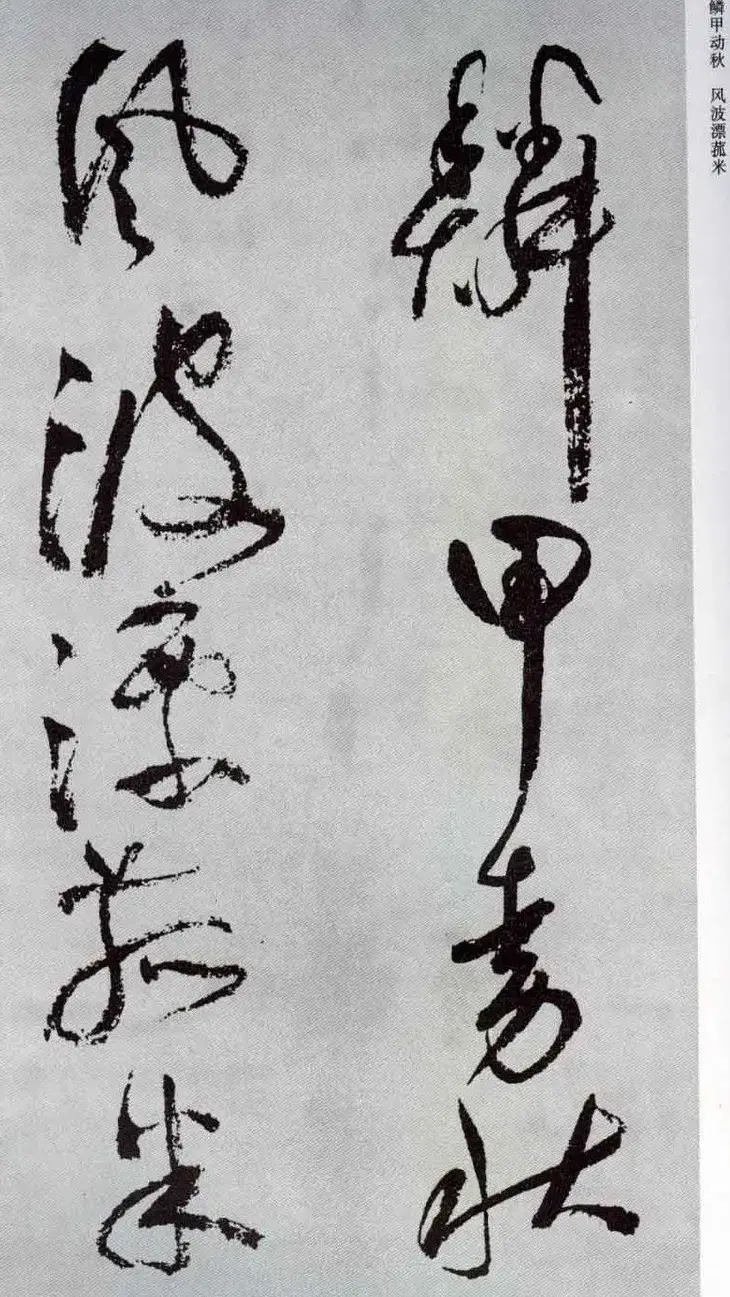 鳞甲动秋 风波漂菰米
鳞甲动秋
風波漂菰米